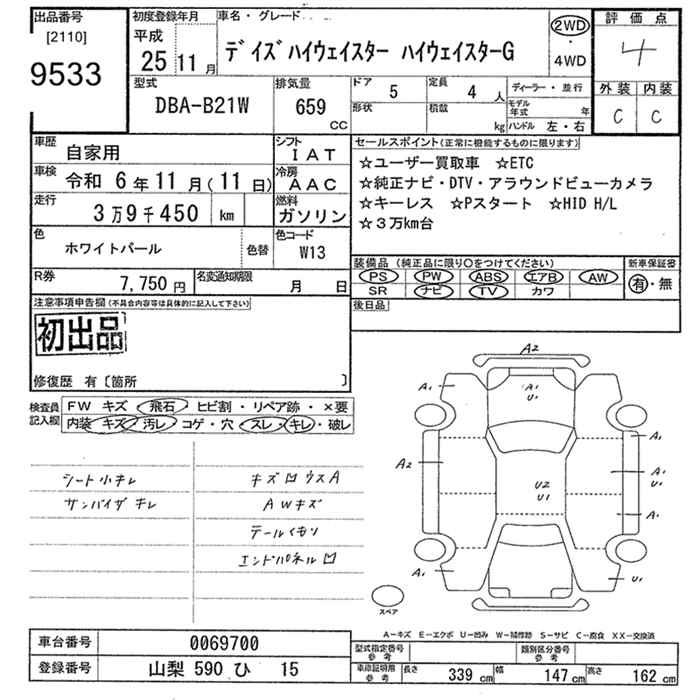 出品番号
[2110]
9533
初度登録年月
平成
25 11 月
車名・グレード
デイズ ハイウェイスター ハイウェイスターG
2WD
・
4WD
評価点
4
外装 内装
C C
型式
DBA-B21W
排気量
659
CC
ドア
5
定員
4 人
形状
積載
kg
ディーラー・並行
モデル年式 年
ハンドル 左・右
車歴
自家用
シフト
IAT
車検
令和 6 年 11 月 ( 11 日)
冷房
AAC
走行
3 万 9 千 450 km
燃料
ガソリン
色
ホワイトパール
色替
色コード
W13
R券
7,750 円
名変通知期限
月 日
セールスポイント(正常に機能するものに限ります)
☆ユーザー買取車 ☆ETC
☆純正ナビ・DTV・アラウンドビューカメラ
☆キーレス ☆Pスタート ☆HID H/L
☆3万km台
装備品(純正品に限り○をつけてください)
PS PW ABS エアB AW
SR ナビ TV カワ
新車保証書
有・無
後日品
注意事項申告欄(不具合内容等は具体的に記入して下さい)
初出品
修復歴 有〔箇所 〕
検査員
記入欄
FW キズ・飛石・ヒビ割・リペア跡・×要
内装 キズ・汚レ・コゲ・穴・スレ・キレ・破レ
シート小キレ
サンバイザ キレ
キズ凹ウスA
AWキズ
テールくもり
エンドパネル凹
A2
A1
A1
U1
A1
A1
A2
U2
U1
A1
A1
A1
U1
スペア
A−キズ E−エクボ U−凹み W−補修跡 S−サビ C−腐食 XX−交換済
車台番号
0069700
登録番号
山梨 590 ひ 15
型式指定番号
参考
類別区分番号
参考
車庫証明用
参考
長さ
339 cm
幅
147 cm
高さ
162 cm